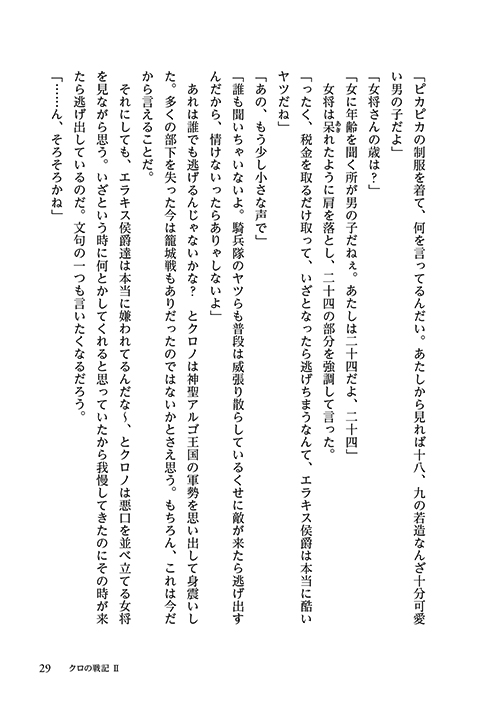 「ピカピカの制服を着て、何を言ってるんだい。あたしから見れば十八、九の若造なんざ十分可愛
い男の子だよ」
「女将さんの歳は？」
「女に年齢を聞く所が男の子だねぇ。あたしは二十四だよ、二十四」
女将は呆れたように肩を落とし、二十四の部分を強調して言った。
「ったく、税金を取るだけ取って、いざとなったら逃げちまうなんて、エラキス侯爵は本当に酷い
ヤツだね」
「あの、もう少し小さな声で」
「誰も聞いちゃいないよ。騎兵隊のヤツらも普段は威張り散らしているくせに敵が来たら逃げ出す
んだから、情けないったらありゃしないよ」
あれは誰でも逃げるんじゃないかな？　とクロノは神聖アルゴ王国の軍勢を思い出して身震いし
た。多くの部下を失った今は籠城戦もありだったのではないかとさえ思う。もちろん、これは今だ
から言えることだ。
それにしても、エラキス侯爵達は本当に嫌われてるんだな～、とクロノは悪口を並べ立てる女将
を見ながら思う。いざという時に何とかしてくれると思っていたから我慢してきたのにその時が来
たら逃げ出しているのだ。文句の一つも言いたくなるだろう。
「……ん、そろそろかね」
29 クロの戦記 Ⅱ